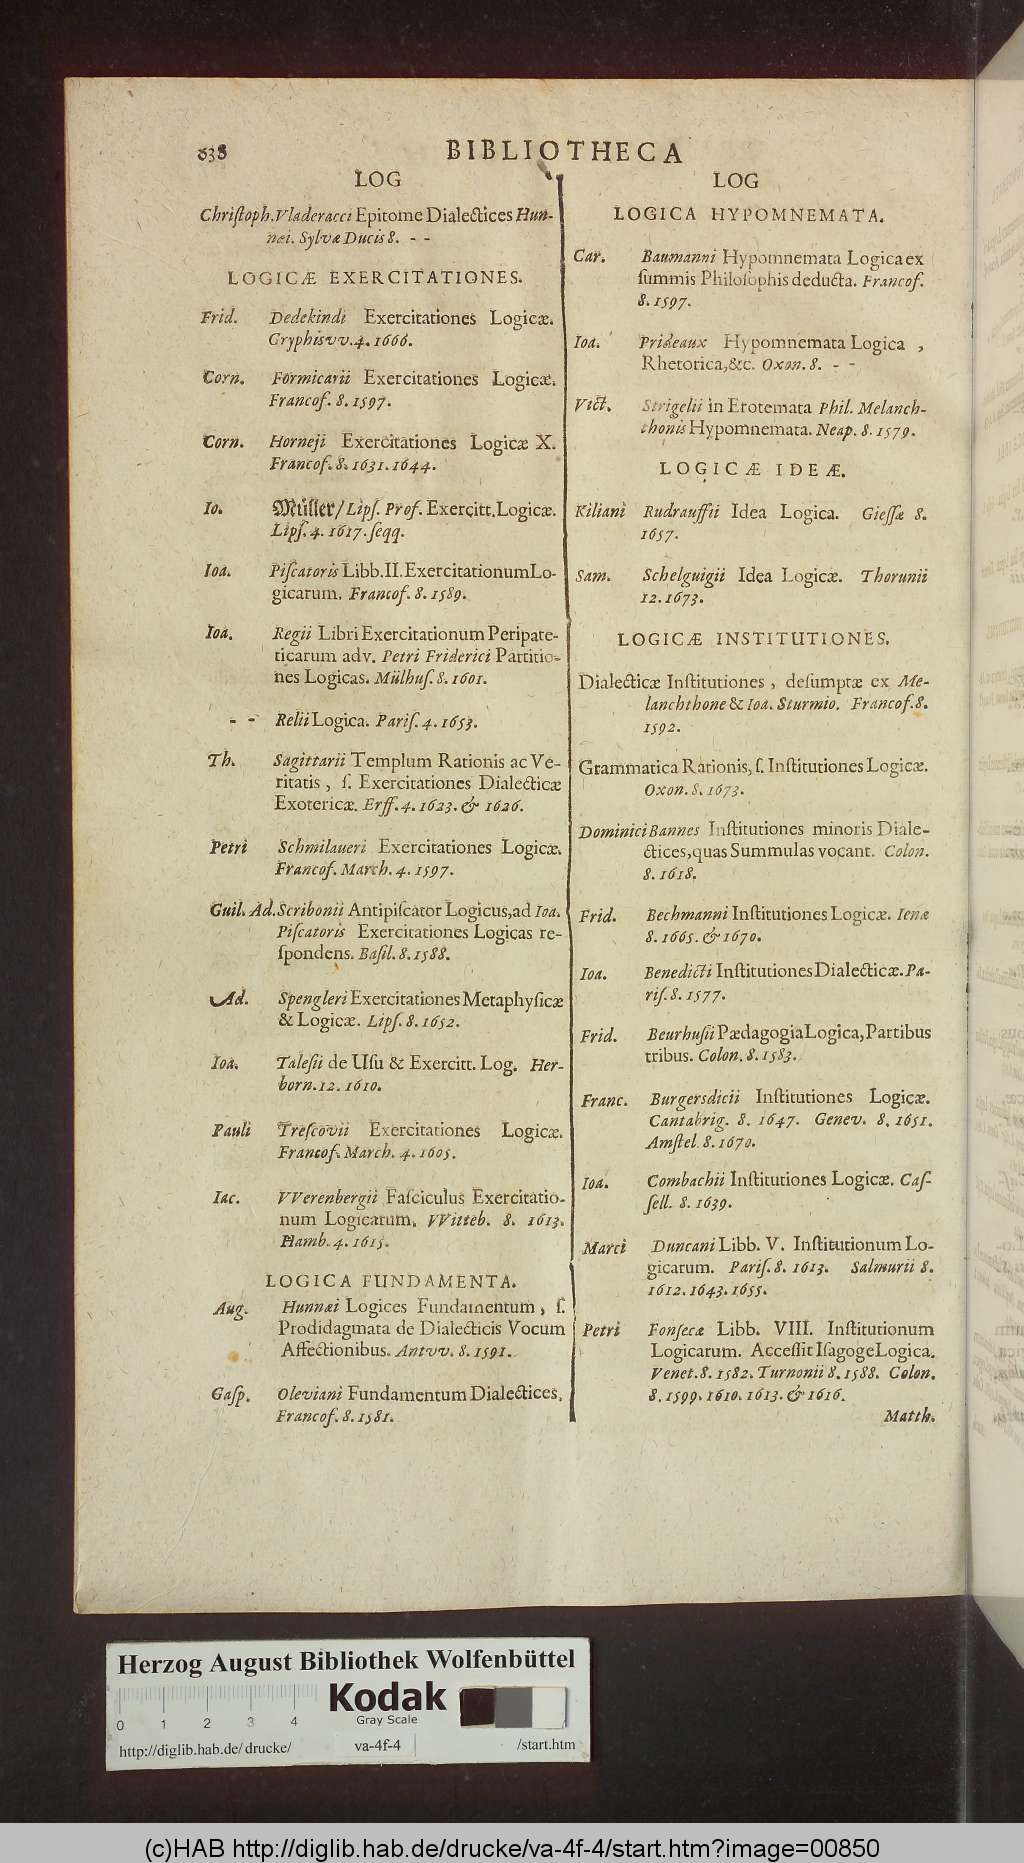 838 BIBLIOTHECA
LOG
Chriſtoph. Vladeracci Epitome Dialectices Hun-
næi. Sylvæ Ducis 8. - -
LOGICÆ EXERCITATIONES.
Frid. Dedekindi Exercitationes Logicæ.
Gryphisvv. 4. 1666.
Corn. Formicarii Exercitationes Logicæ.
Francof. 8. 1597.
Corn. Horneji Exercitationes Logicæ X.
Francof. 8. 1631. 1644.
Io. Müller / Lipſ. Prof. Exercitt. Logicæ.
Lipſ. 4. 1617. ſeqq.
Ioa. Piſcatoris Libb. II. Exercitationum Lo-
gicarum. Francof. 8. 1589.
Ioa. Regii Libri Exercitationum Peripate-
ticarum adv. Petri Friderici Partitio-
nes Logicas. Mülhuſ. 8. 1601.
- - Relii Logica. Pariſ. 4. 1653.
Th. Sagittarii Templum Rationis ac Ve-
ritatis, ſ. Exercitationes Dialecticæ
Exotericæ. Erff. 4. 1623. & 1626.
Petri Schmilaueri Exercitationes Logicæ.
Francof. March. 4. 1597.
Guil. Ad. Scribonii Antipiſcator Logicus, ad Ioa.
Piſcatoris Exercitationes Logicas re-
ſpondens. Baſil. 8. 1588.
Ad. Spengleri Exercitationes Metaphyſicæ
& Logicæ. Lipſ. 8. 1652.
Ioa. Taleſii de Uſu & Exercitt. Log. Her-
born. 12. 1610.
Pauli Treſcovii Exercitationes Logicæ.
Francof. March. 4. 1605.
Iac. VVerenbergii Faſciculus Exercitatio-
num Logicarum. VVitteb. 8. 1613.
Hamb. 4. 1615.
LOGICA FUNDAMENTA.
Aug. Hunnæi Logices Fundamentum, ſ.
Prodidagmata de Dialecticis Vocum
Affectionibus. Antvv. 8. 1591.
Gaſp. Oleviani Fundamentum Dialectices.
Francof. 8. 1581.
LOG
LOGICA HYPOMNEMATA.
Car. Baumanni Hypomnemata Logica ex
ſummis Philoſophis deducta. Francof.
8. 1597.
Ioa. Prideaux Hypomnemata Logica,
Rhetorica, &c. Oxon. 8. - -
Vict. Strigelii in Erotemata Phil. Melanch-
thonis Hypomnemata. Neap. 8. 1579.
LOGICÆ IDEÆ.
Kiliani Rudrauffii Idea Logica. Gieſſæ 8.
1657.
Sam. Schelguigii Idea Logicæ. Thorunii
12. 1673.
LOGICÆ INSTITUTIONES.
Dialecticæ Inſtitutiones, deſumptæ ex Me-
lanchthone & Ioa. Sturmio. Francof. 8.
1592.
Grammatica Rationis, ſ. Inſtitutiones Logicæ.
Oxon. 8. 1673.
Dominici Bannes Inſtitutiones minoris Diale-
ctices, quas Summulas vocant. Colon.
8. 1618.
Frid. Bechmanni Inſtitutiones Logicæ. Ienæ
8. 1665. & 1670.
Ioa. Benedicti Inſtitutiones Dialecticæ. Pa-
riſ. 8. 1577.
Frid. Beurhuſii Pædagogia Logica, Partibus
tribus. Colon. 8. 1583.
Franc. Burgersdicii Inſtitutiones Logicæ.
Cantabrig. 8. 1647. Genev. 8. 1651.
Amſtel. 8. 1670.
Ioa. Combachii Inſtitutiones Logicæ. Caſ-
ſell. 8. 1639.
Marci Duncani Libb. V. Inſtitutionum Lo-
gicarum. Pariſ. 8. 1613. Salmurii 8.
1612. 1643. 1655.
Petri Fonſecæ Libb. VIII. Inſtitutionum
Logicarum. Acceſſit Iſagoge Logica.
Venet. 8. 1582. Turnonii 8. 1588. Colon.
8. 1599. 1610. 1613. & 1616.
Matth.
Herzog August Bibliothek Wolfenbüttel
Kodak
Gray Scale
0 1 2 3 4
http://diglib.hab.de/drucke/ va-4f-4 /start.htm
(c)HAB http://diglib.hab.de/drucke/va-4f-4/start.htm?image=00850